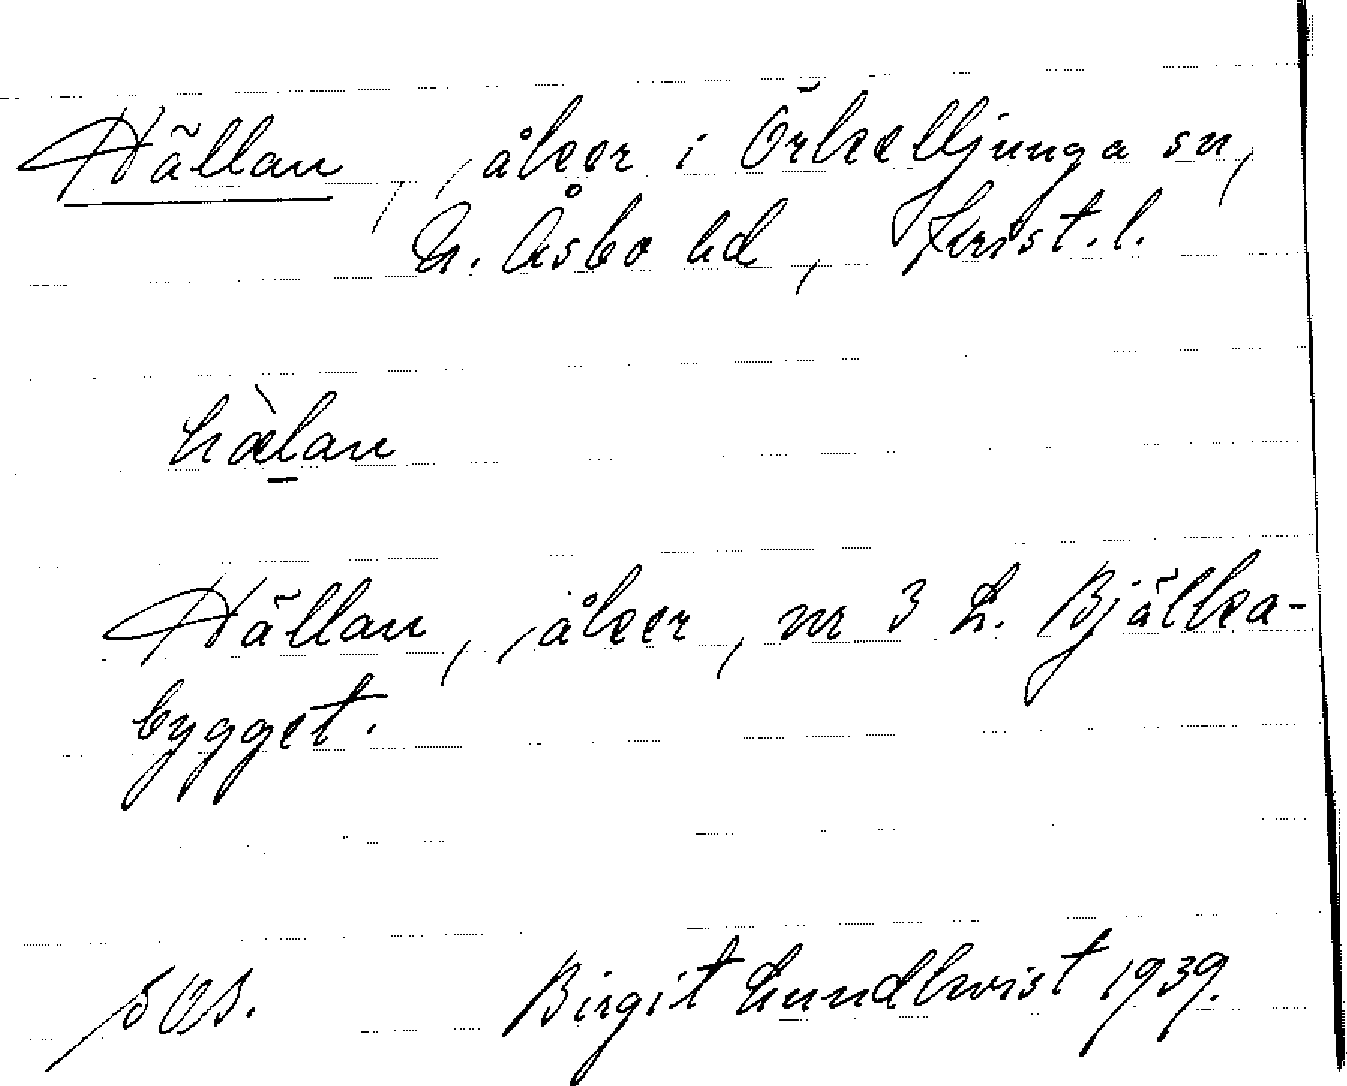 Hällan, åker i Örkelljunga sn,
N. Åsbo hd, Krist. l.
hὰlan
Hällan, åker, nr 3 L. Bjälka-
bygget.
Birgit Lundkvist 1939.